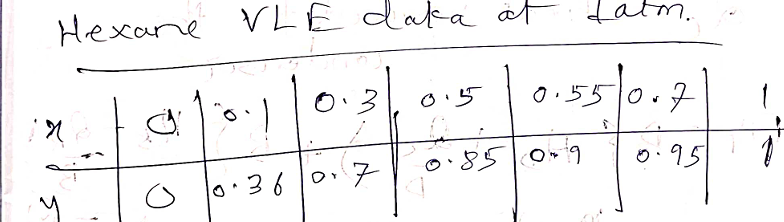 Hexane VLE data at 1atm.
x 0 0.1 0.3 0.5 0.55 0.7 1
y 0 0.36 0.7 0.85 0.9 0.95 1